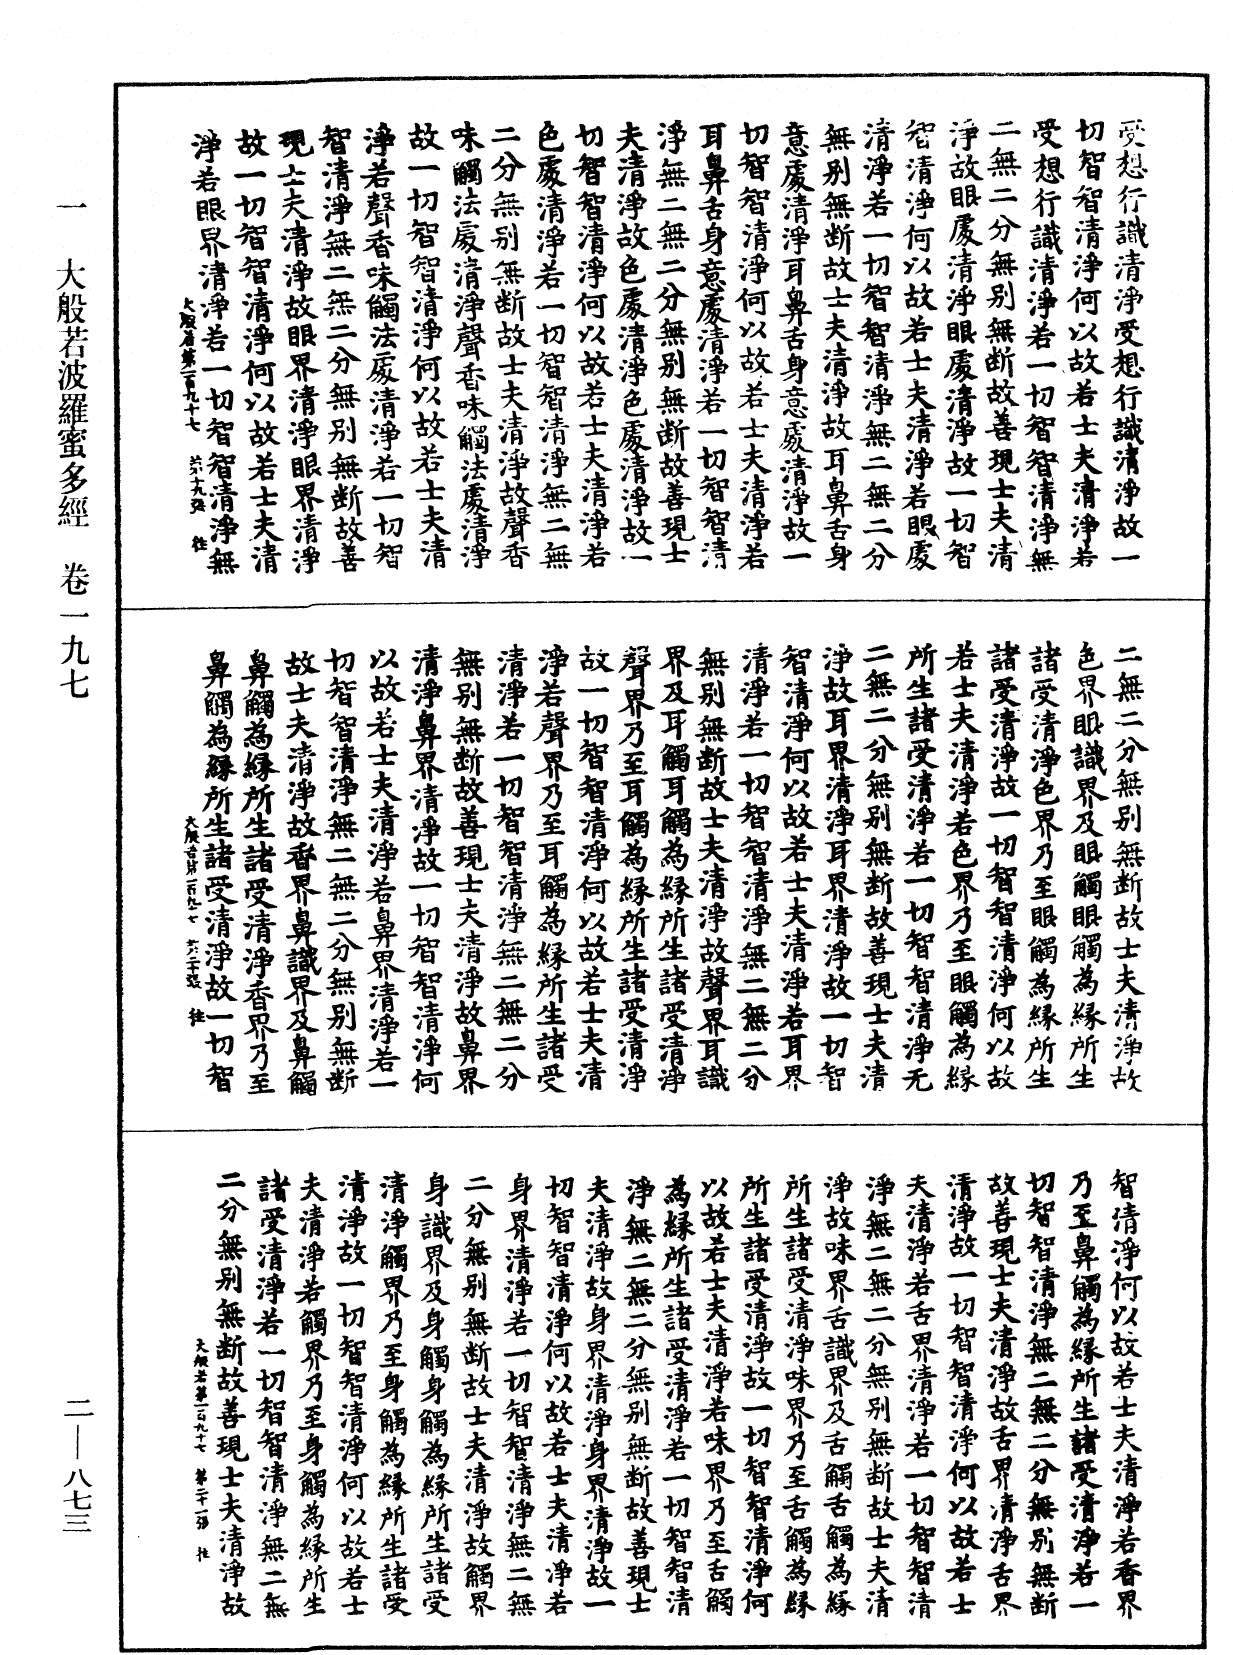 受想行識清淨受想行識清淨故一
切智智清淨何以故若士夫清淨若
受想行識清淨若一切智智清淨無
二無二分無別無斷故善現士夫清
淨故眼處清淨眼處清淨故一切智
智清淨何以故若士夫清淨若眼處
清淨若一切智智清淨無二無二分
無別無斷故士夫清淨故耳鼻舌身
意處清淨耳鼻舌身意處清淨故一
切智智清淨何以故若士夫清淨若
耳鼻舌身意處清淨若一切智智清
淨無二無二分無別無斷故善現士
夫清淨故色處清淨色處清淨故一
切智智清淨何以故若士夫清淨若
色處清淨若一切智智清淨無二無
二分無別無斷故士夫清淨故聲香
味觸法處清淨聲香味觸法處清淨
故一切智智清淨何以故若士夫清
淨若聲香味觸法處清淨若一切智
智清淨無二無二分無別無斷故善
現士夫清淨故眼界清淨眼界清淨
故一切智智清淨何以故若士夫清
淨若眼界清淨若一切智智清淨無
大般若第一百九十七 第十九張 往
二無二分無別無斷故士夫清淨故
色界眼識界及眼觸眼觸為緣所生
諸受清淨色界乃至眼觸為緣所生
諸受清淨故一切智智清淨何以故
若士夫清淨若色界乃至眼觸為緣
所生諸受清淨若一切智智清淨无
二無二分無別無斷故善現士夫清
淨故耳界清淨耳界清淨故一切智
智清淨何以故若士夫清淨若耳界
清淨若一切智智清淨無二無二分
無別無斷故士夫清淨故聲界耳識
界及耳觸耳觸為緣所生諸受清淨
聲界乃至耳觸為緣所生諸受清淨
故一切智智清淨何以故若士夫清
淨若聲界乃至耳觸為緣所生諸受
清淨若一切智智清淨無二無二分
無別無斷故善現士夫清淨故鼻界
清淨鼻界清淨故一切智智清淨何
以故若士夫清淨若鼻界清淨若一
切智智清淨無二無二分無別無斷
故士夫清淨故香界鼻識界及鼻觸
鼻觸為緣所生諸受清淨香界乃至
鼻觸為緣所生諸受清淨故一切智
大般若第一百九十七 第二十張 往
智清淨何以故若士夫清淨若香界
乃至鼻觸為緣所生諸受清淨若一
切智智清淨無二無二分無別無斷
故善現士夫清淨故舌界清淨舌界
清淨故一切智智清淨何以故若士
夫清淨若舌界清淨若一切智智清
淨無二無二分無別無斷故士夫清
淨故味界舌識界及舌觸舌觸為緣
所生諸受清淨味界乃至舌觸為緣
所生諸受清淨故一切智智清淨何
以故若士夫清淨若味界乃至舌觸
為緣所生諸受清淨若一切智智清
淨無二無二分無別無斷故善現士
夫清淨故身界清淨身界清淨故一
切智智清淨何以故若士夫清淨若
身界清淨若一切智智清淨無二無
二分無別無斷故士夫清淨故觸界
身識界及身觸身觸為緣所生諸受
清淨觸界乃至身觸為緣所生諸受
清淨故一切智智清淨何以故若士
夫清淨若觸界乃至身觸為緣所生
諸受清淨若一切智智清淨無二無
二分無別無斷故善現士夫清淨故
大般若第一百九十七 第二十一張 往
一 大般若波羅蜜多經 卷一九七
二—八七三